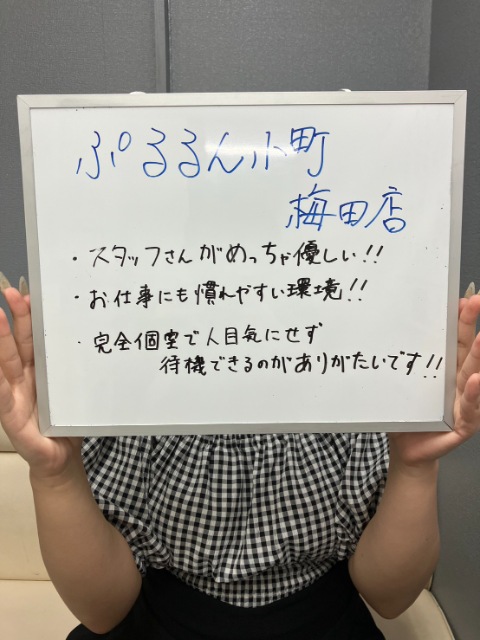 ぷるるん小町
梅田店
・スタッフさんがめっちゃ優しい!!
・お仕事にも慣れやすい環境!!
・完全個室で人目気にせず
待機できるのがありがたいです!!